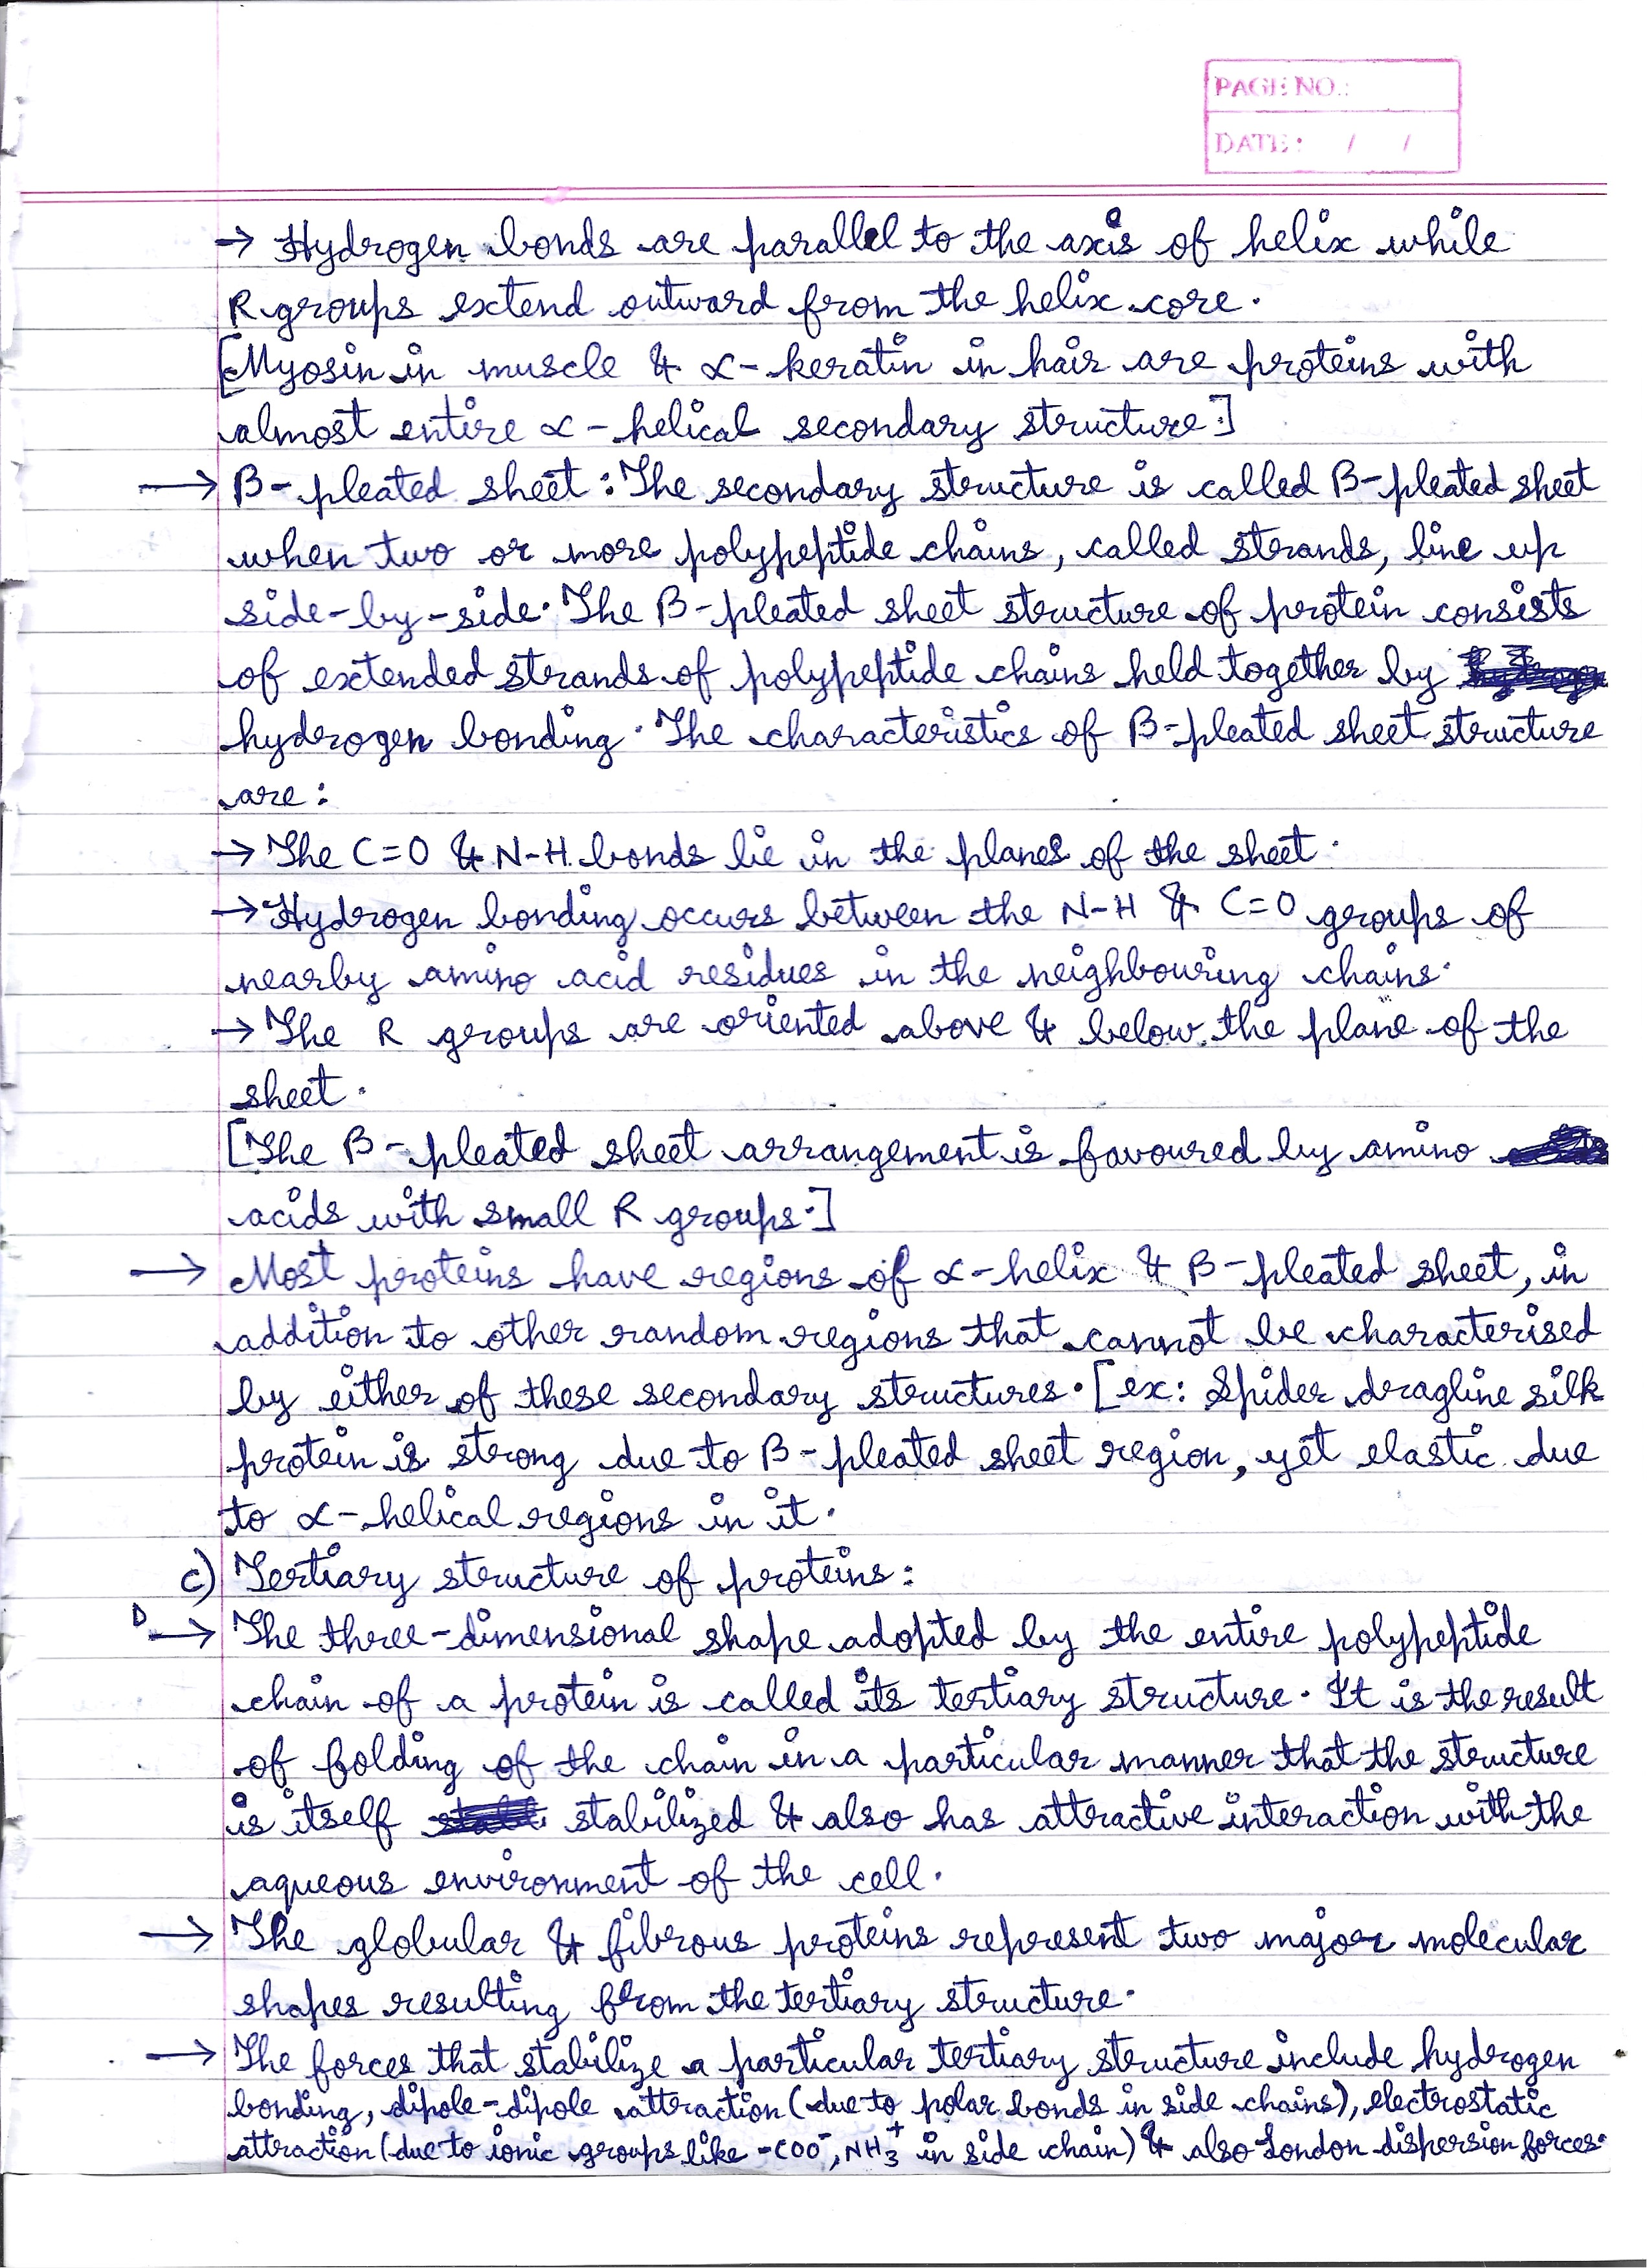 PAGE NO.:
DATE: / /
→ Hydrogen bonds are parallel to the axis of helix while
R groups extend outward from the helix core.
[Myosin in muscle & α-keratin in hair are proteins with
almost entire α-helical secondary structure.]
→ β-pleated sheet: The secondary structure is called β-pleated sheet
when two or more polypeptide chains, called strands, line up
side-by-side. The β-pleated sheet structure of protein consists
of extended strands of polypeptide chains held together by
hydrogen bonding. The characteristics of β-pleated sheet structure
are:
→ The C=O & N-H bonds lie in the planes of the sheet.
→ Hydrogen bonding occurs between the N-H & C=O groups of
nearby amino acid residues in the neighbouring chains.
→ The R groups are oriented above & below the plane of the
sheet.
[The β-pleated sheet arrangement is favoured by amino
acids with small R groups.]
→ Most proteins have regions of α-helix & β-pleated sheet, in
addition to other random regions that cannot be characterised
by either of these secondary structures. [ex: Spider dragline silk
protein is strong due to β-pleated sheet region, yet elastic due
to α-helical regions in it.
c) Tertiary structure of proteins:
→ The three-dimensional shape adopted by the entire polypeptide
chain of a protein is called its tertiary structure. It is the result
of folding of the chain in a particular manner that the structure
is itself stabilized & also has attractive interaction with the
aqueous environment of the cell.
→ The globular & fibrous proteins represent two major molecular
shapes resulting from the tertiary structure.
→ The forces that stabilize a particular tertiary structure include hydrogen
bonding, dipole-dipole attraction (due to polar bonds in side chains), electrostatic
attraction (due to ionic groups like -COO⁻, NH₃⁺ in side chain) & also London dispersion forces.